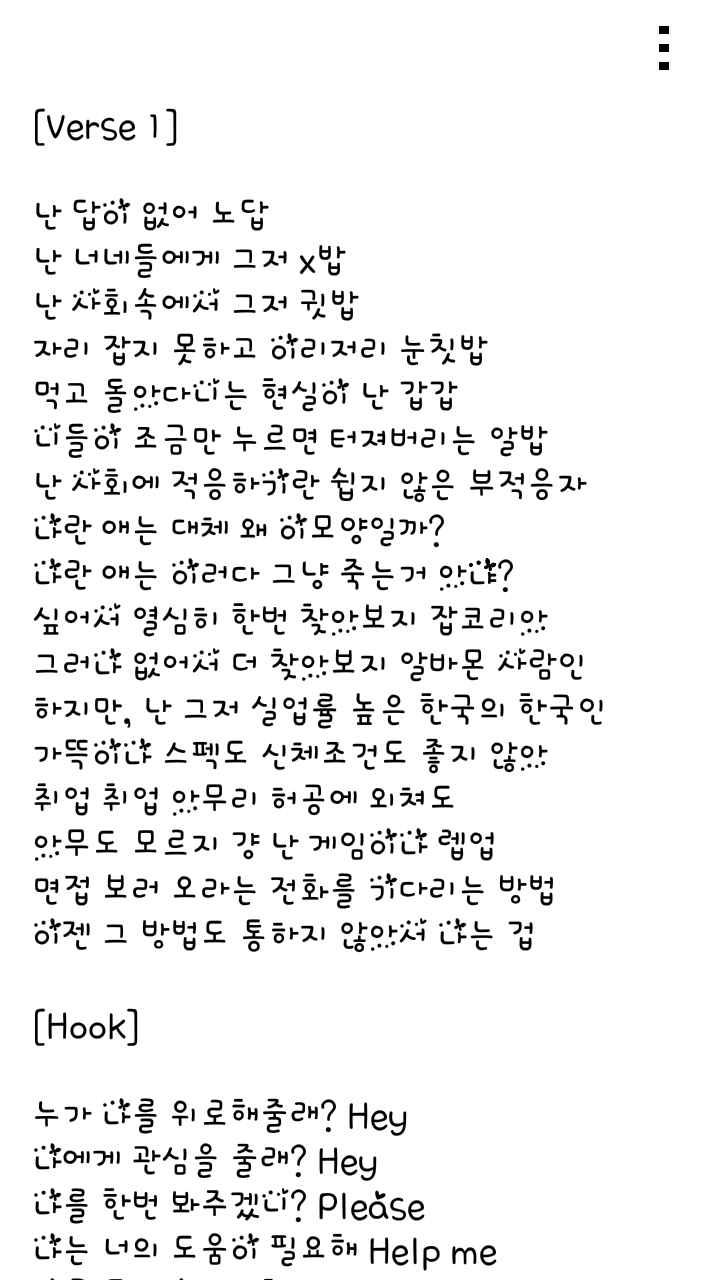 [Verse 1]
난 답이 없어 노답
난 너네들에게 그저 x밥
난 사회속에서 그저 귓밥
자리 잡지 못하고 이리저리 눈칫밥
먹고 돌아다니는 현실이 난 갑갑
니들이 조금만 누르면 터져버리는 알밥
난 사회에 적응하기란 쉽지 않은 부적응자
나란 애는 대체 왜 이모양일까?
나란 애는 이러다 그냥 죽는거 아냐?
싶어서 열심히 한번 찾아보지 잡코리아
그러나 없어서 더 찾아보지 알바몬 사람인
하지만, 난 그저 실업률 높은 한국의 한국인
가뜩이나 스펙도 신체조건도 좋지 않아
취업 취업 아무리 허공에 외쳐도
아무도 모르지 걍 난 게임이나 렙업
면접 보러 오라는 전화를 기다리는 방법
이젠 그 방법도 통하지 않아서 나는 겁
[Hook]
누가 나를 위로해줄래? Hey
나에게 관심을 줄래? Hey
나를 한번 봐주겠니? Please
나는 너의 도움이 필요해 Help me